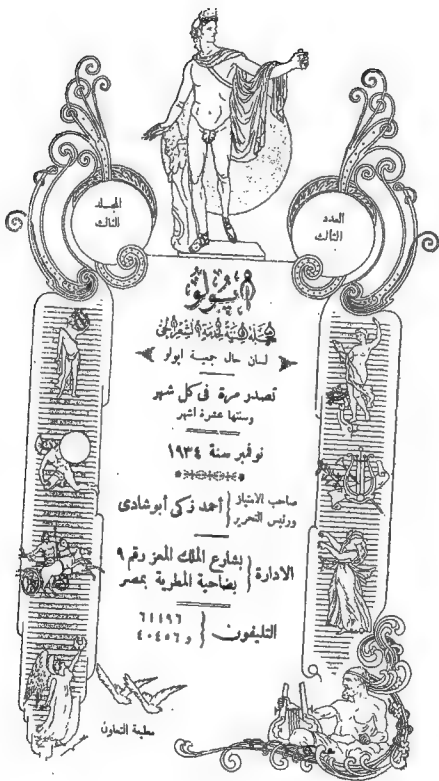 المجلد
الثالث
العدد
الثالث
أپولو
مجلة فنية لخدمة الشعر الحي
لسان حال جمعية ابولو
تصدر مرة فى كل شهر
وسنتها عشرة اشهر
نوفمبر سنة ١٩٣٤
صاحب الامتياز
ورئيس التحرير
أحمد زكى أبو شادى
الادارة
بشارع الملك المعز رقم ٩
بضاحية المطرية بمصر
التليفون
٦١١٩٦
و ٤٠٤٥٦
مطبعة التعاون